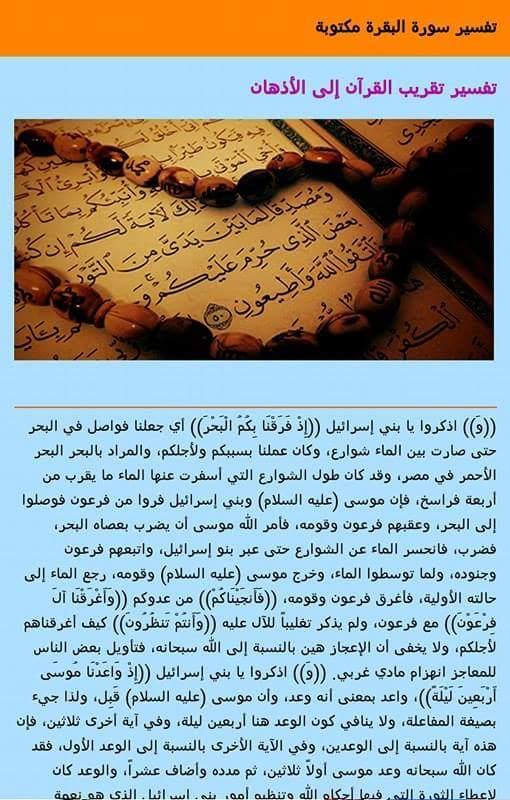 تفسير سورة البقرة مكتوبة
تفسير تقريب القرآن إلى الأذهان
وَمُصَدِّقًا لِّمَا بَيْنَ يَدَيَّ مِنَ التَّوْرَ
بَعْضَ الَّذِي حُرِّمَ عَلَيْكُمْ وَ
فَاتَّقُوا اللَّهَ وَأَطِيعُونِ ٥٠
((وَ)) اذكروا يا بني إسرائيل ((إِذْ فَرَقْنَا بِكُمُ الْبَحْرَ)) أي جعلنا فواصل في البحر
حتى صارت بين الماء شوارع، وكان عملنا بسببكم ولأجلكم، والمراد بالبحر البحر
الأحمر في مصر، وقد كان طول الشوارع التي أسفرت عنها الماء ما يقرب من
أربعة فراسخ، فإن موسى (عليه السلام) وبني إسرائيل فروا من فرعون فوصلوا
إلى البحر، وعقبهم فرعون وقومه، فأمر الله موسى أن يضرب بعصاه البحر،
فضرب، فانحسر الماء عن الشوارع حتى عبر بنو إسرائيل، واتبعهم فرعون
وجنوده، ولما توسطوا الماء، وخرج موسى (عليه السلام) وقومه، رجع الماء إلى
حالته الأولية، فأغرق فرعون وقومه، ((فَأَنجَيْنَاكُمْ)) من عدوكم ((وَأَغْرَقْنَا آلَ
فِرْعَوْنَ)) مع فرعون، ولم يذكر تغليباً للآل عليه ((وَأَنتُمْ تَنظُرُونَ)) كيف أغرقناهم
لأجلكم، ولا يخفى أن الإعجاز هين بالنسبة إلى الله سبحانه، فتأويل بعض الناس
للمعاجز انهزام مادي غربي. ((وَ)) اذكروا يا بني إسرائيل ((إِذْ وَاعَدْنَا مُوسَى
أَرْبَعِينَ لَيْلَةً))، واعد بمعنى أنه وعد، وأن موسى (عليه السلام) قَبِل، ولذا جيء
بصيغة المفاعلة، ولا ينافي كون الوعد هنا أربعين ليلة، وفي آية أخرى ثلاثين، فإن
هذه آية بالنسبة إلى الوعدين، وفي الآية الأخرى بالنسبة إلى الوعد الأول، فقد
كان الله سبحانه وعد موسى أولاً ثلاثين، ثم مدده وأضاف عشراً، والوعد كان
لإعطاء التوراة التي فيها أحكام الله وتنظيم أمور بني إسرائيل الذي هو نعمة